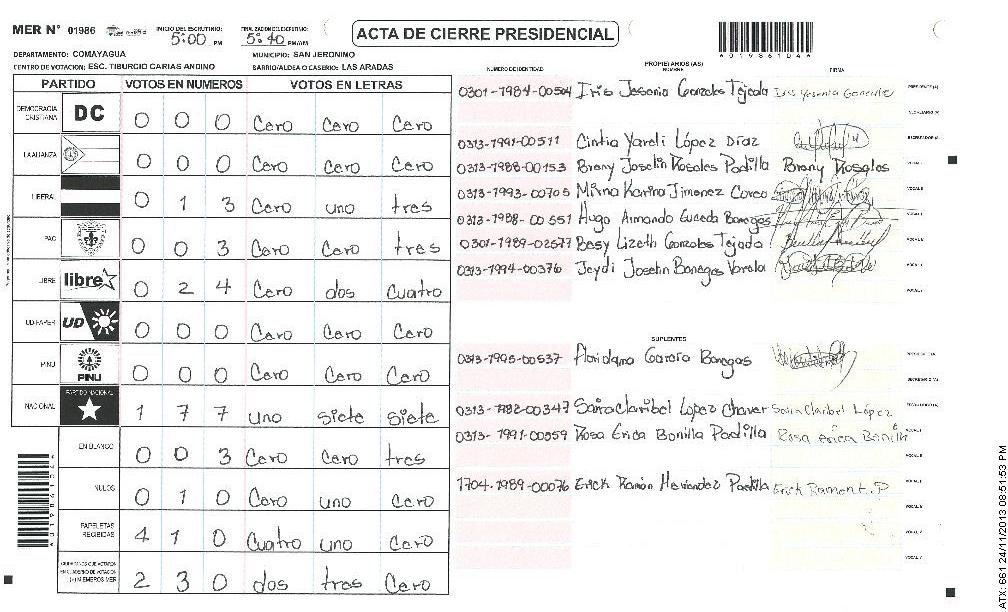 MER Nº 01986 INICIO DEL ESCRUTINIO: 5:00 PM FINALIZACION ESCRUTINIO: 5:40 PM/AM ACTA DE CIERRE PRESIDENCIAL
DEPARTAMENTO: COMAYAGUA MUNICIPIO: SAN JERONIMO
CENTRO DE VOTACION: ESC. TIBURCIO CARIAS ANDINO BARRIO/ALDEA O CASERIO: LAS ARADAS
PARTIDO VOTOS EN NUMEROS VOTOS EN LETRAS
DEMOCRACIA CRISTIANA DC 0 0 0 Cero Cero Cero
LA ALIANZA 0 0 0 Cero Cero Cero
LIBERAL 0 1 3 Cero uno tres
PAC 0 0 3 Cero Cero tres
LIBRE libre 0 2 4 Cero dos Cuatro
UD-FAPER UD 0 0 0 Cero Cero Cero
PINU PINU 0 0 0 Cero Cero Cero
NACIONAL PARTIDO NACIONAL 1 7 7 uno siete siete
EN BLANCO 0 0 3 Cero Cero tres
NULOS 0 1 0 Cero uno Cero
PAPELETAS RECIBIDAS 4 1 0 Cuatro uno Cero
CIUDADANOS QUE VOTARON EN CUADERNO DE VOTACION (+) MIEMBROS MER 2 3 0 dos tres Cero
PROPIETARIOS (AS)
NUMERO DE IDENTIDAD NOMBRE FIRMA
0301-1984-00504 Iris Jesenia Gonzales Tejada Iris Yesenia Gonzalez
0313-1991-00511 Cintia Yareli López Díaz
0313-1988-00153 Brany Joselin Rosales Padilla Brany Rosales
0313-1993-00705 Mirna Karina Jimenez
0313-1988-00551 Hugo Armando Banegas
0301-1989-02577 Besy Lizeth Gonzales Tejada
0313-1994-00376 Jeydi Joselin Banegas Varela
SUPLENTES
0313-1995-00537 Banegas
0313-1982-00347 Saira Claribel Lopez Chaver Saira Claribel López
0313-1991-00359 Rosa Erica Bonilla Padilla Rosa Erica Bonilla
1704-1989-00076 Erick Ramón Hernández Padilla Erick Ramon H. P
A01986104A
ATX: 661 24/11/2013 08:51:53 PM